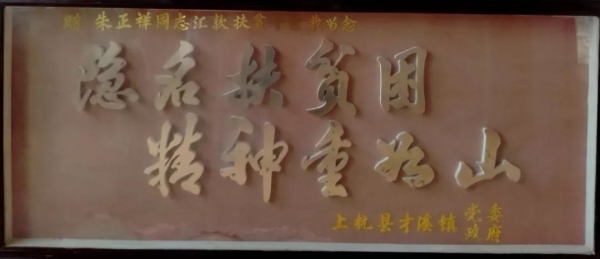 赠 朱正祥同志汇款扶贫
隐名扶贫困
精神重如山
上杭县才溪镇 党委
政府